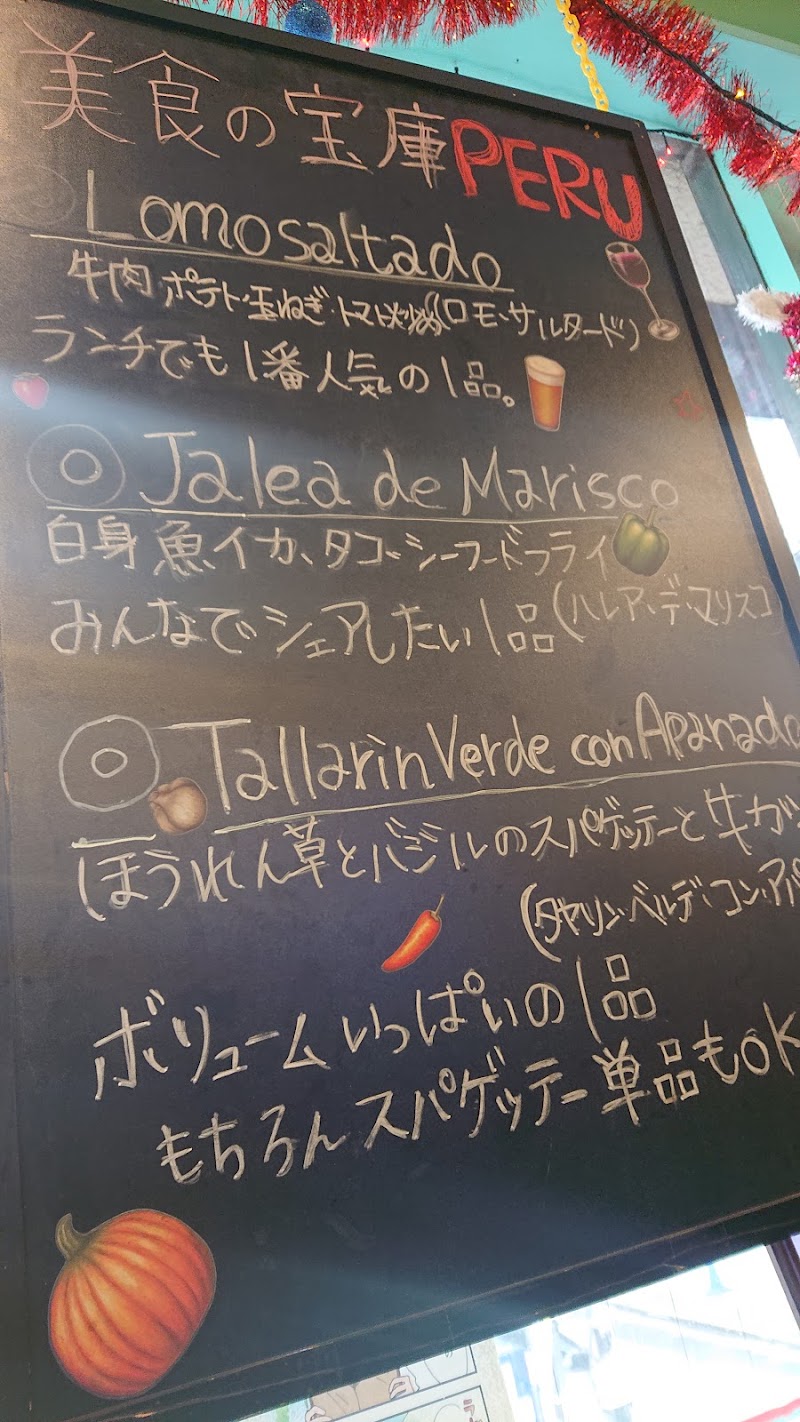 美食の宝庫PERU
◎ Lomo saltado
牛肉 ポテト・玉ねぎ・トマト炒め(ロモ・サルタード)
ランチでも1番人気の1品。
◎ Jalea de Marisco
白身魚イカ、タコ・シーフードフライ
みんなでシェアしたい1品(ハレア・デ・マリスコ
◎ Tallarin Verde con Apanado
ほうれん草とバジルのスパゲッテーと牛カツ
(タヤリン・ベルデ・コン・アパ
ボリュームいっぱいの1品
もちろんスパゲッテー単品もOK